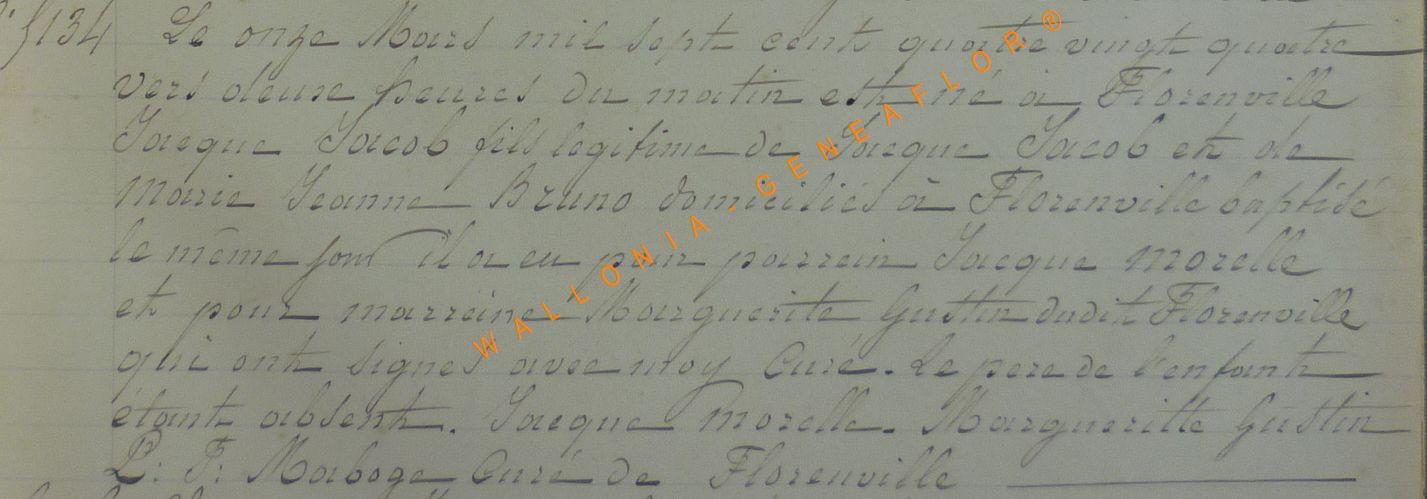 134 Le onze Mars mil sept cent quatre vingt quatre
vers deuse heures du matin est né à Florenville
Jacque Jacob fils legitime de Jacque Jacob et de
Marie Jeanne Bruno domiciliés à Florenville baptisé
le même jour il a eu pour parrein Jacque Morelle
et pour marreine Marguerite Gustin dudit Florenville
qui ont signés avec moy Curé. Le pere de l'enfant
étant absent. Jacque Morelle. Margueritte Gustin
P: F: Maboge Curé de Florenville
WALLONIA - GENEAFLOR ®